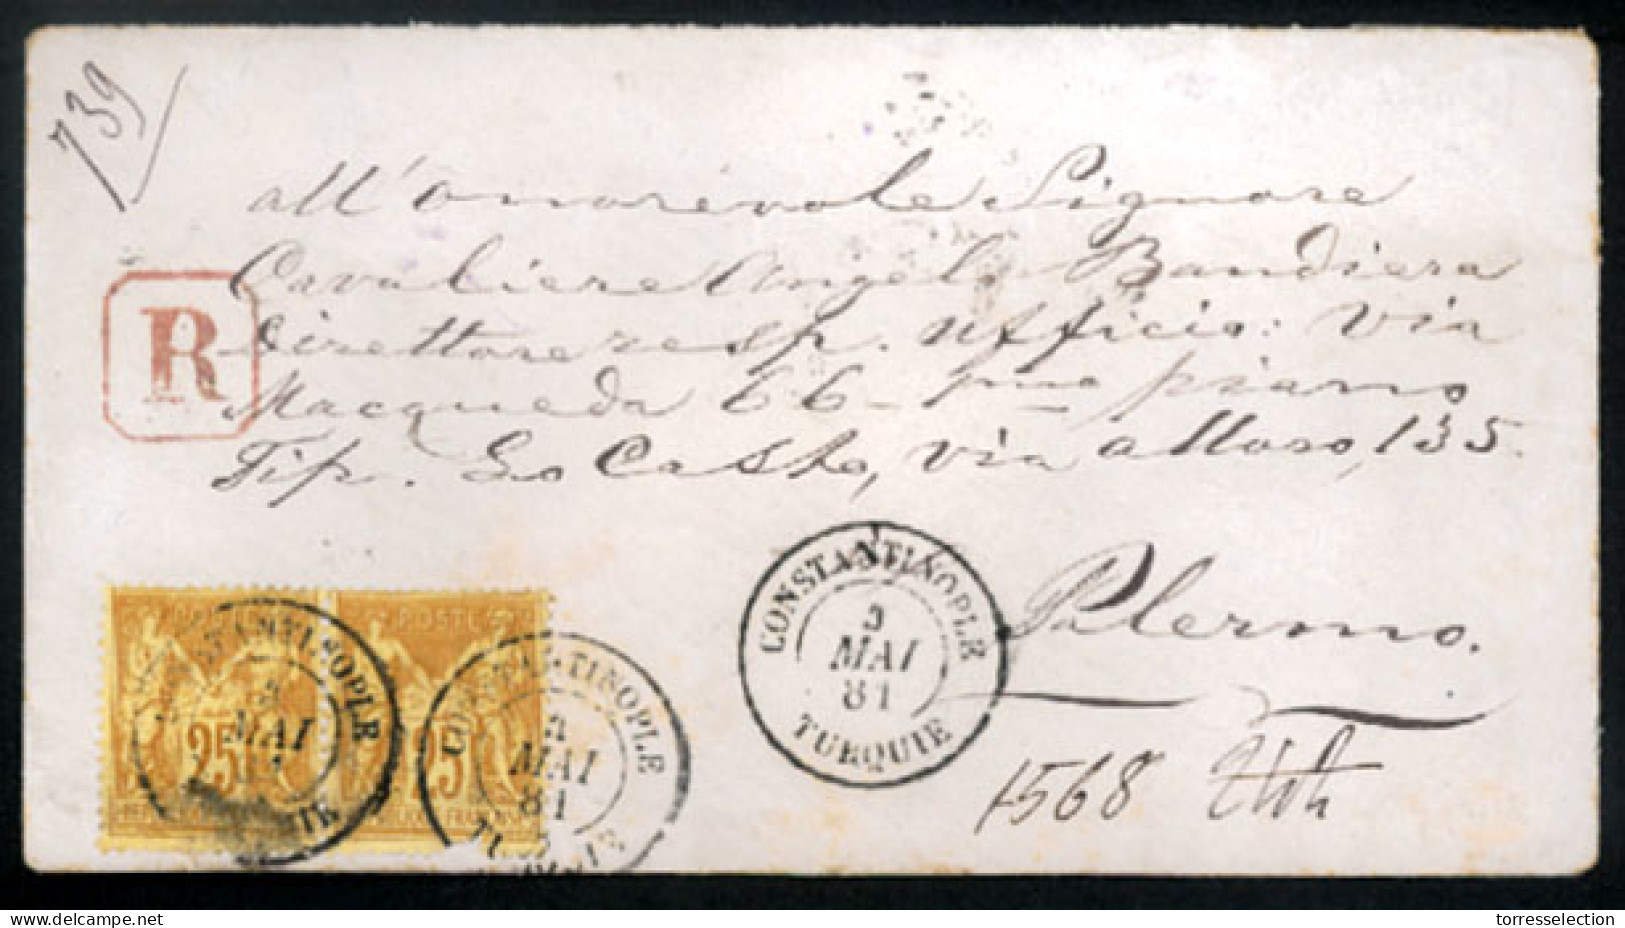 739
all'Onorevole Signore
Cavaliere Angelo Bandiera
Direttore resp. Ufficio: Via
R
Macqueda 66 - 1mo piano
Tip. Lo Casto, via alloro, 135.
Palermo.
CONSTANTINOPLE
3
MAI
81
TURQUIE
POSTE
25
CONSTANTINOPLE
MAI
25
CONSTANTINOPLE
MAI
81
1568
delcampe.net
torresselection